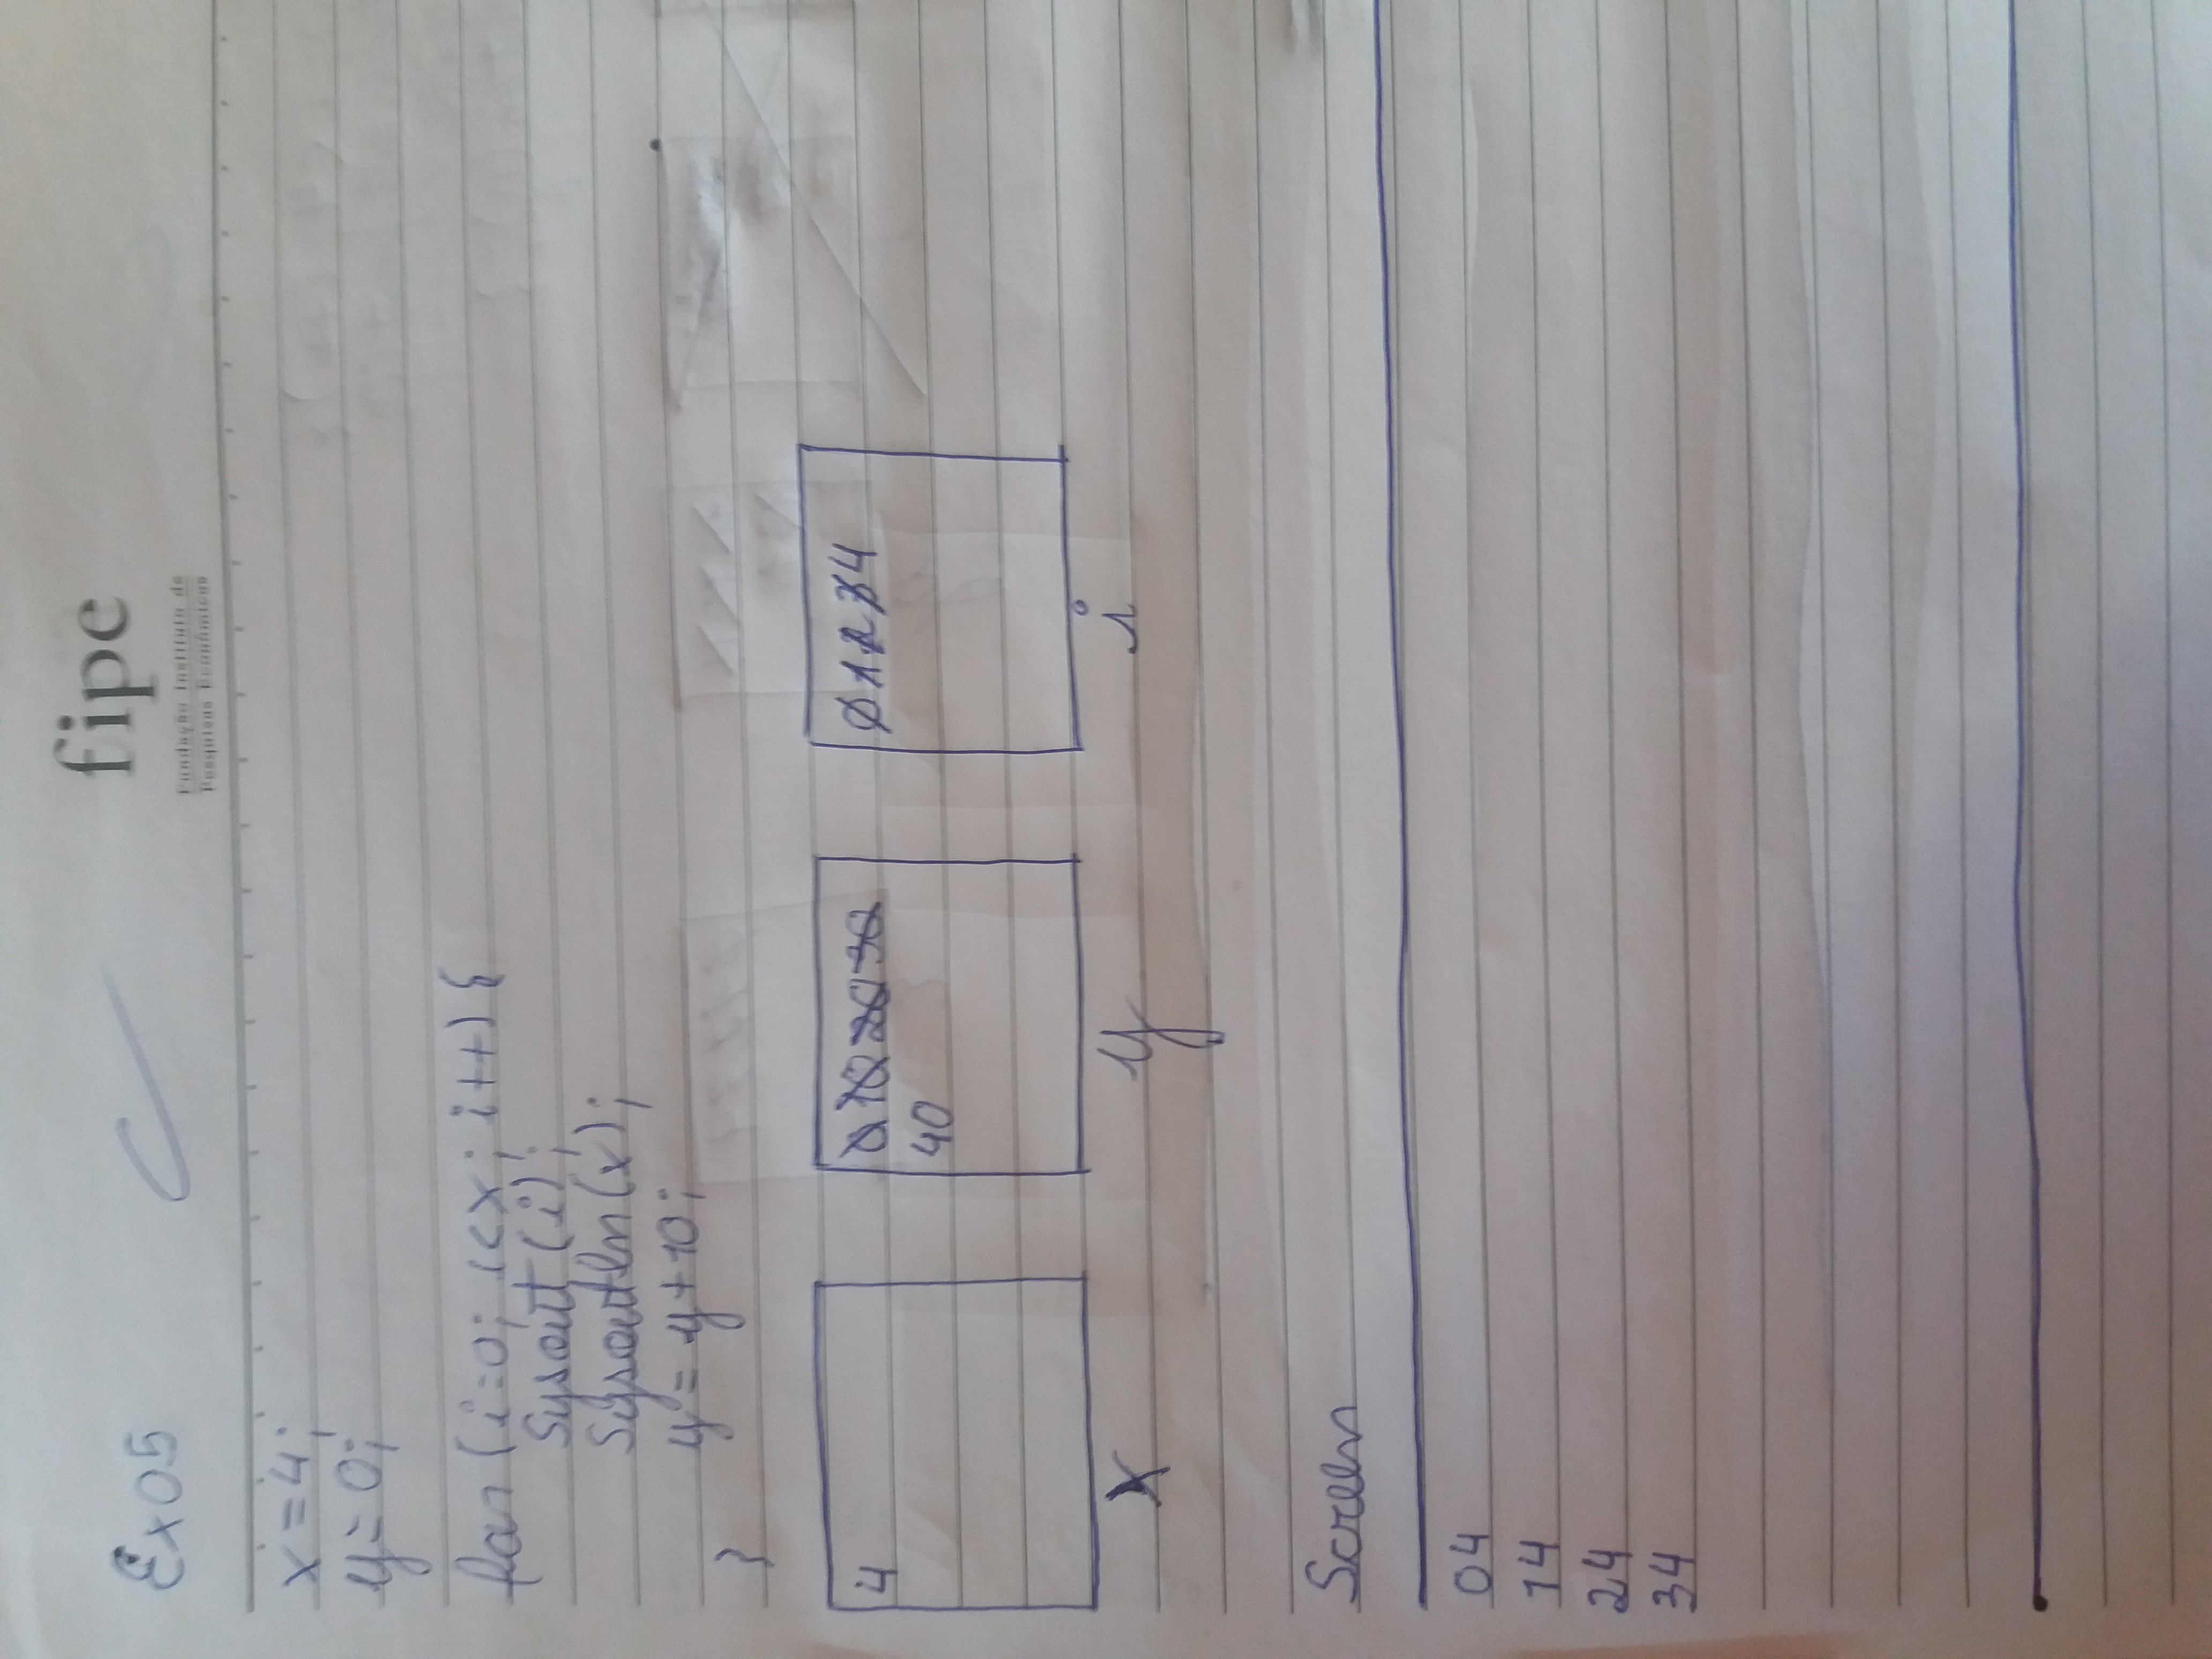 Ex05
fipe
Fundação Instituto de
Pesquisas Econômicas
x=4;
y=0;
for (i=0; i<x; i++) {
Sysout (i);
Sysoutln (x);
y = y+10;
}
4
0 10 20 30
40
0 1 2 3 4
x y i
Screen
04
14
24
34